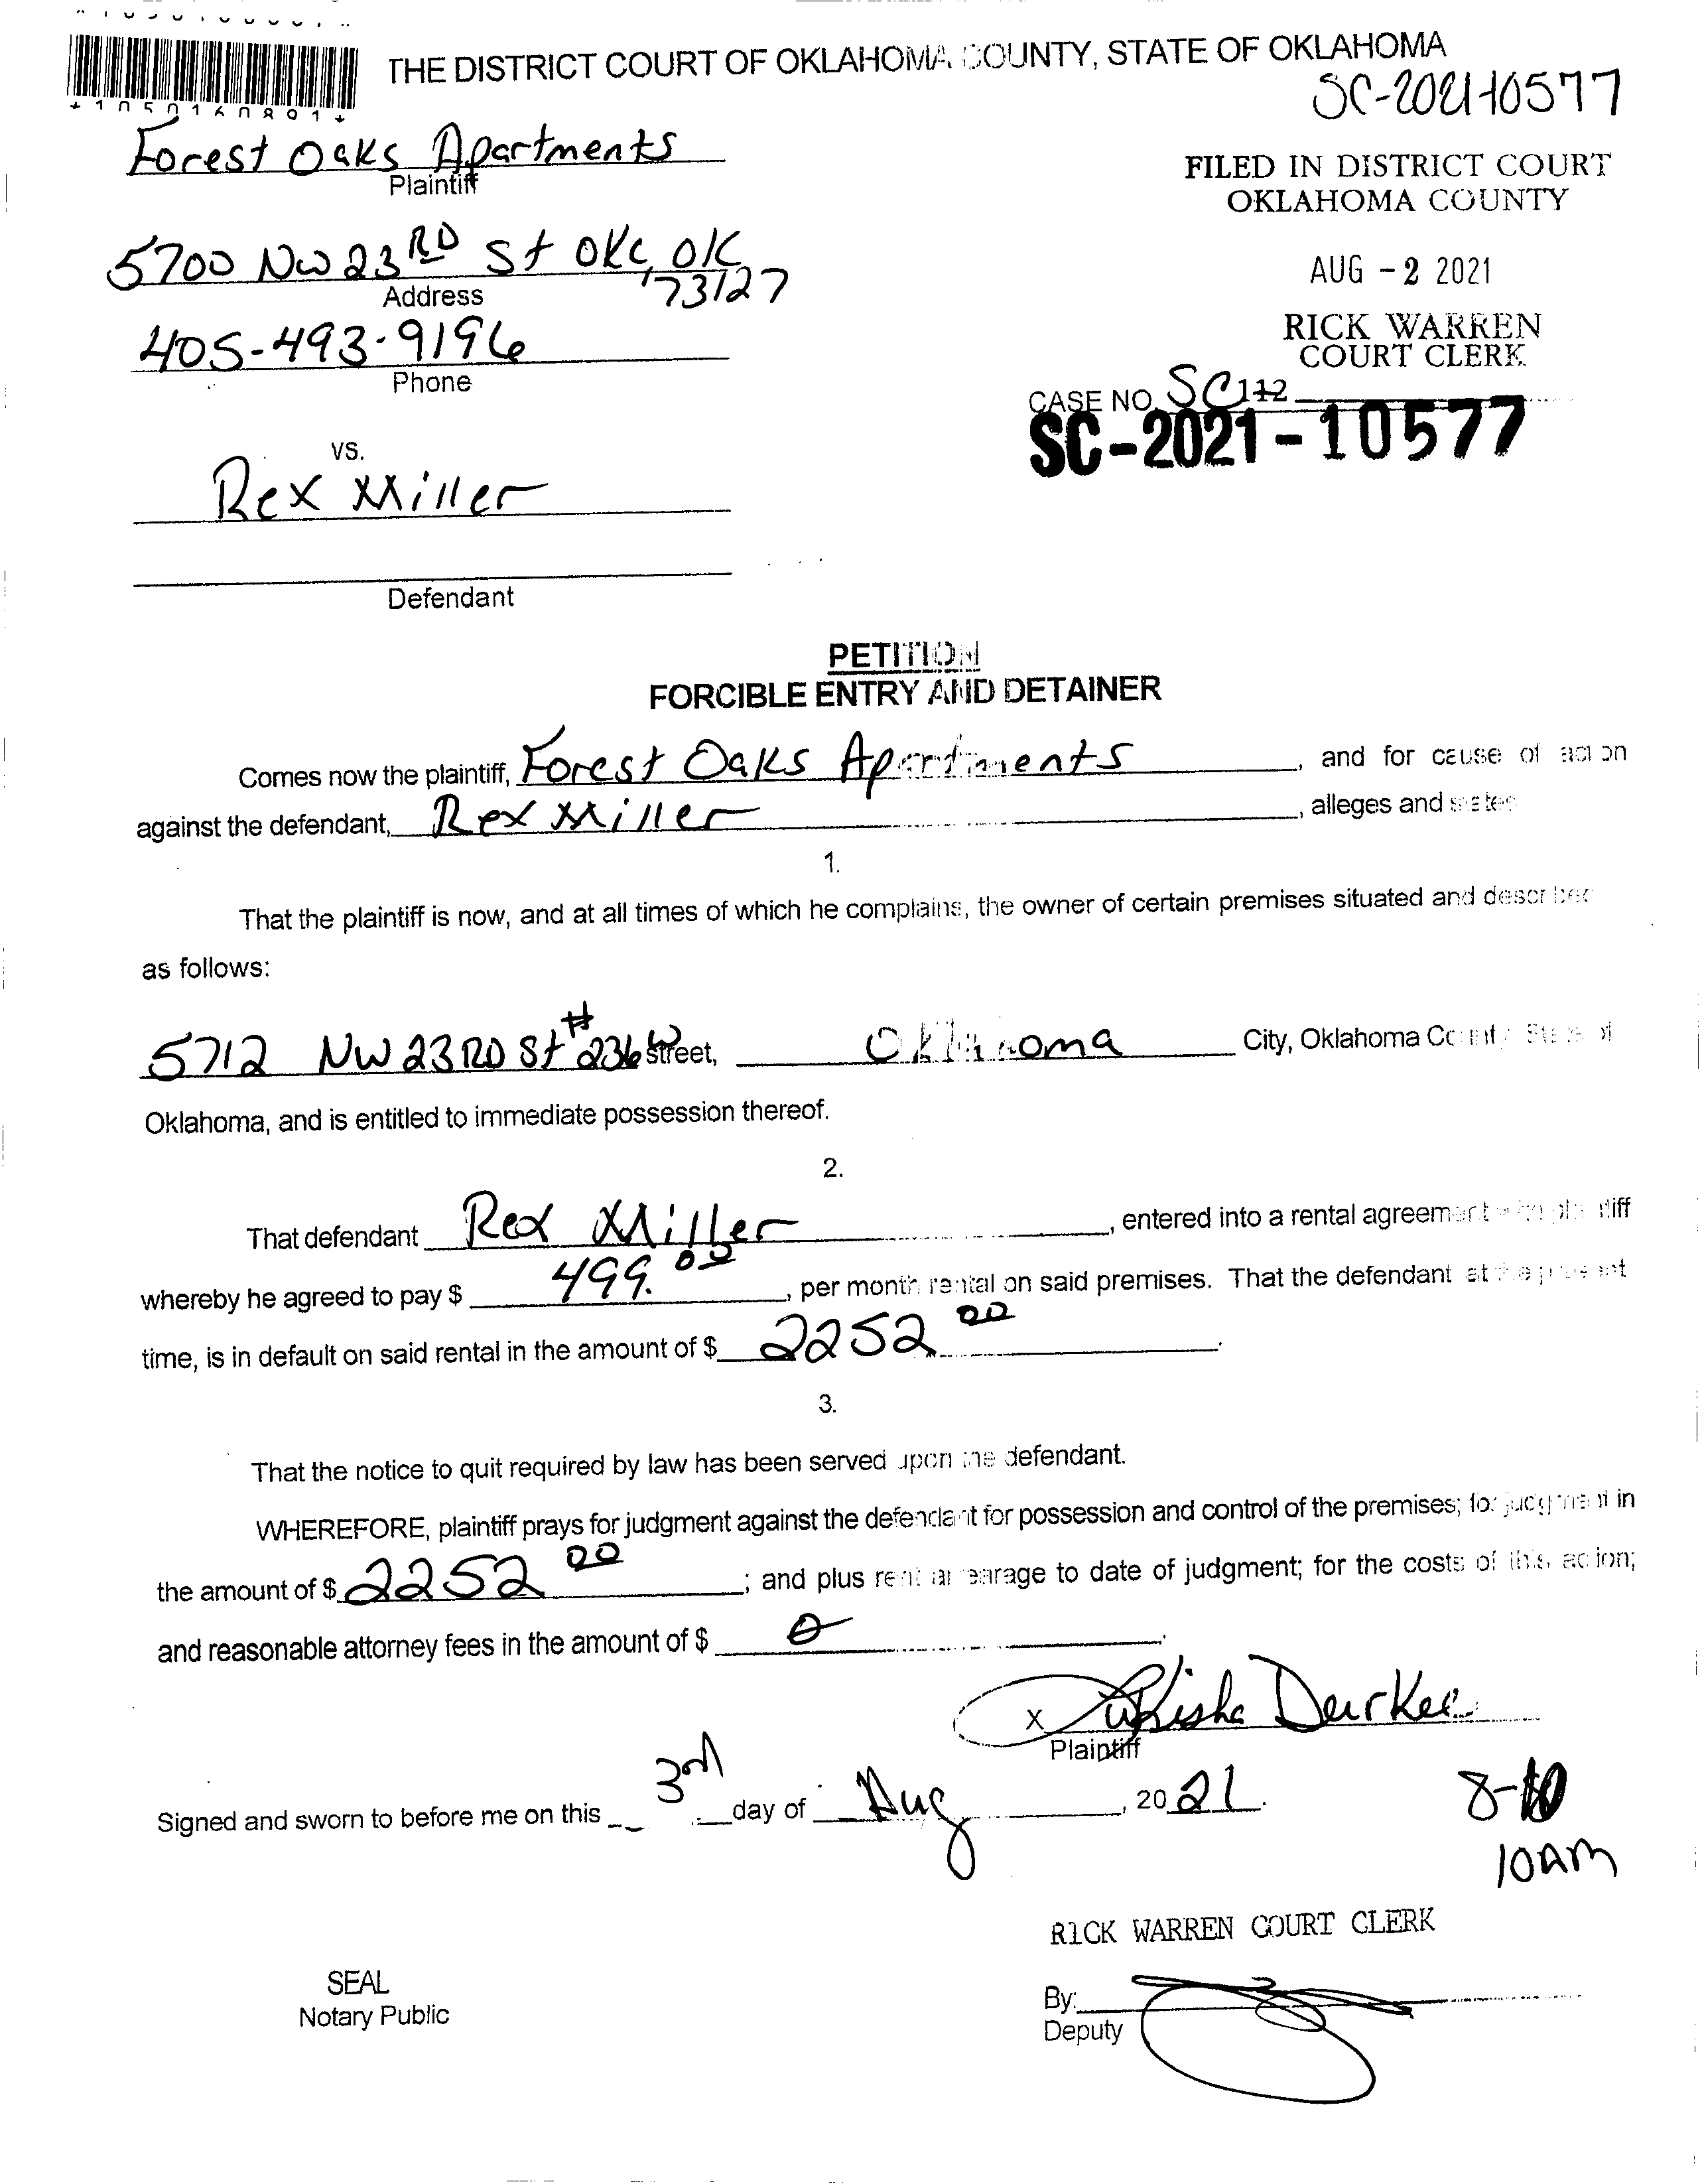 THE DISTRICT COURT OF OKLAHOMA COUNTY, STATE OF OKLAHOMA
SC-2021-10577
*1050160801*
Forest Oaks Apartments
Plaintiff
FILED IN DISTRICT COURT
OKLAHOMA COUNTY
5700 NW 23RD St OKC, OK
73127
Address
AUG - 2 2021
405-493-9196
Phone
RICK WARREN
COURT CLERK
CASE NO. SC 112
SC-2021-10577
VS.
Rex Miller
Defendant
PETITION
FORCIBLE ENTRY AND DETAINER
Comes now the plaintiff, Forest Oaks Apartments, and for cause of action
against the defendant, Rex Miller, alleges and states
1.
That the plaintiff is now, and at all times of which he complains, the owner of certain premises situated and described
as follows:
5712 NW 23RD St #236W Street, Oklahoma City, Oklahoma County State of
Oklahoma, and is entitled to immediate possession thereof.
2.
That defendant Rex Miller, entered into a rental agreement with plaintiff
whereby he agreed to pay $ 499.00, per month rental on said premises. That the defendant at the present
time, is in default on said rental in the amount of $ 2252 00.
3.
That the notice to quit required by law has been served upon the defendant.
WHEREFORE, plaintiff prays for judgment against the defendant for possession and control of the premises; for judgment in
the amount of $ 2252 00; and plus rent arrearage to date of judgment; for the costs of this action;
and reasonable attorney fees in the amount of $ 0.
X Durkee
Plaintiff
Signed and sworn to before me on this 3rd day of Aug, 2021.
8-10
10AM
RICK WARREN COURT CLERK
SEAL
Notary Public
By:
Deputy